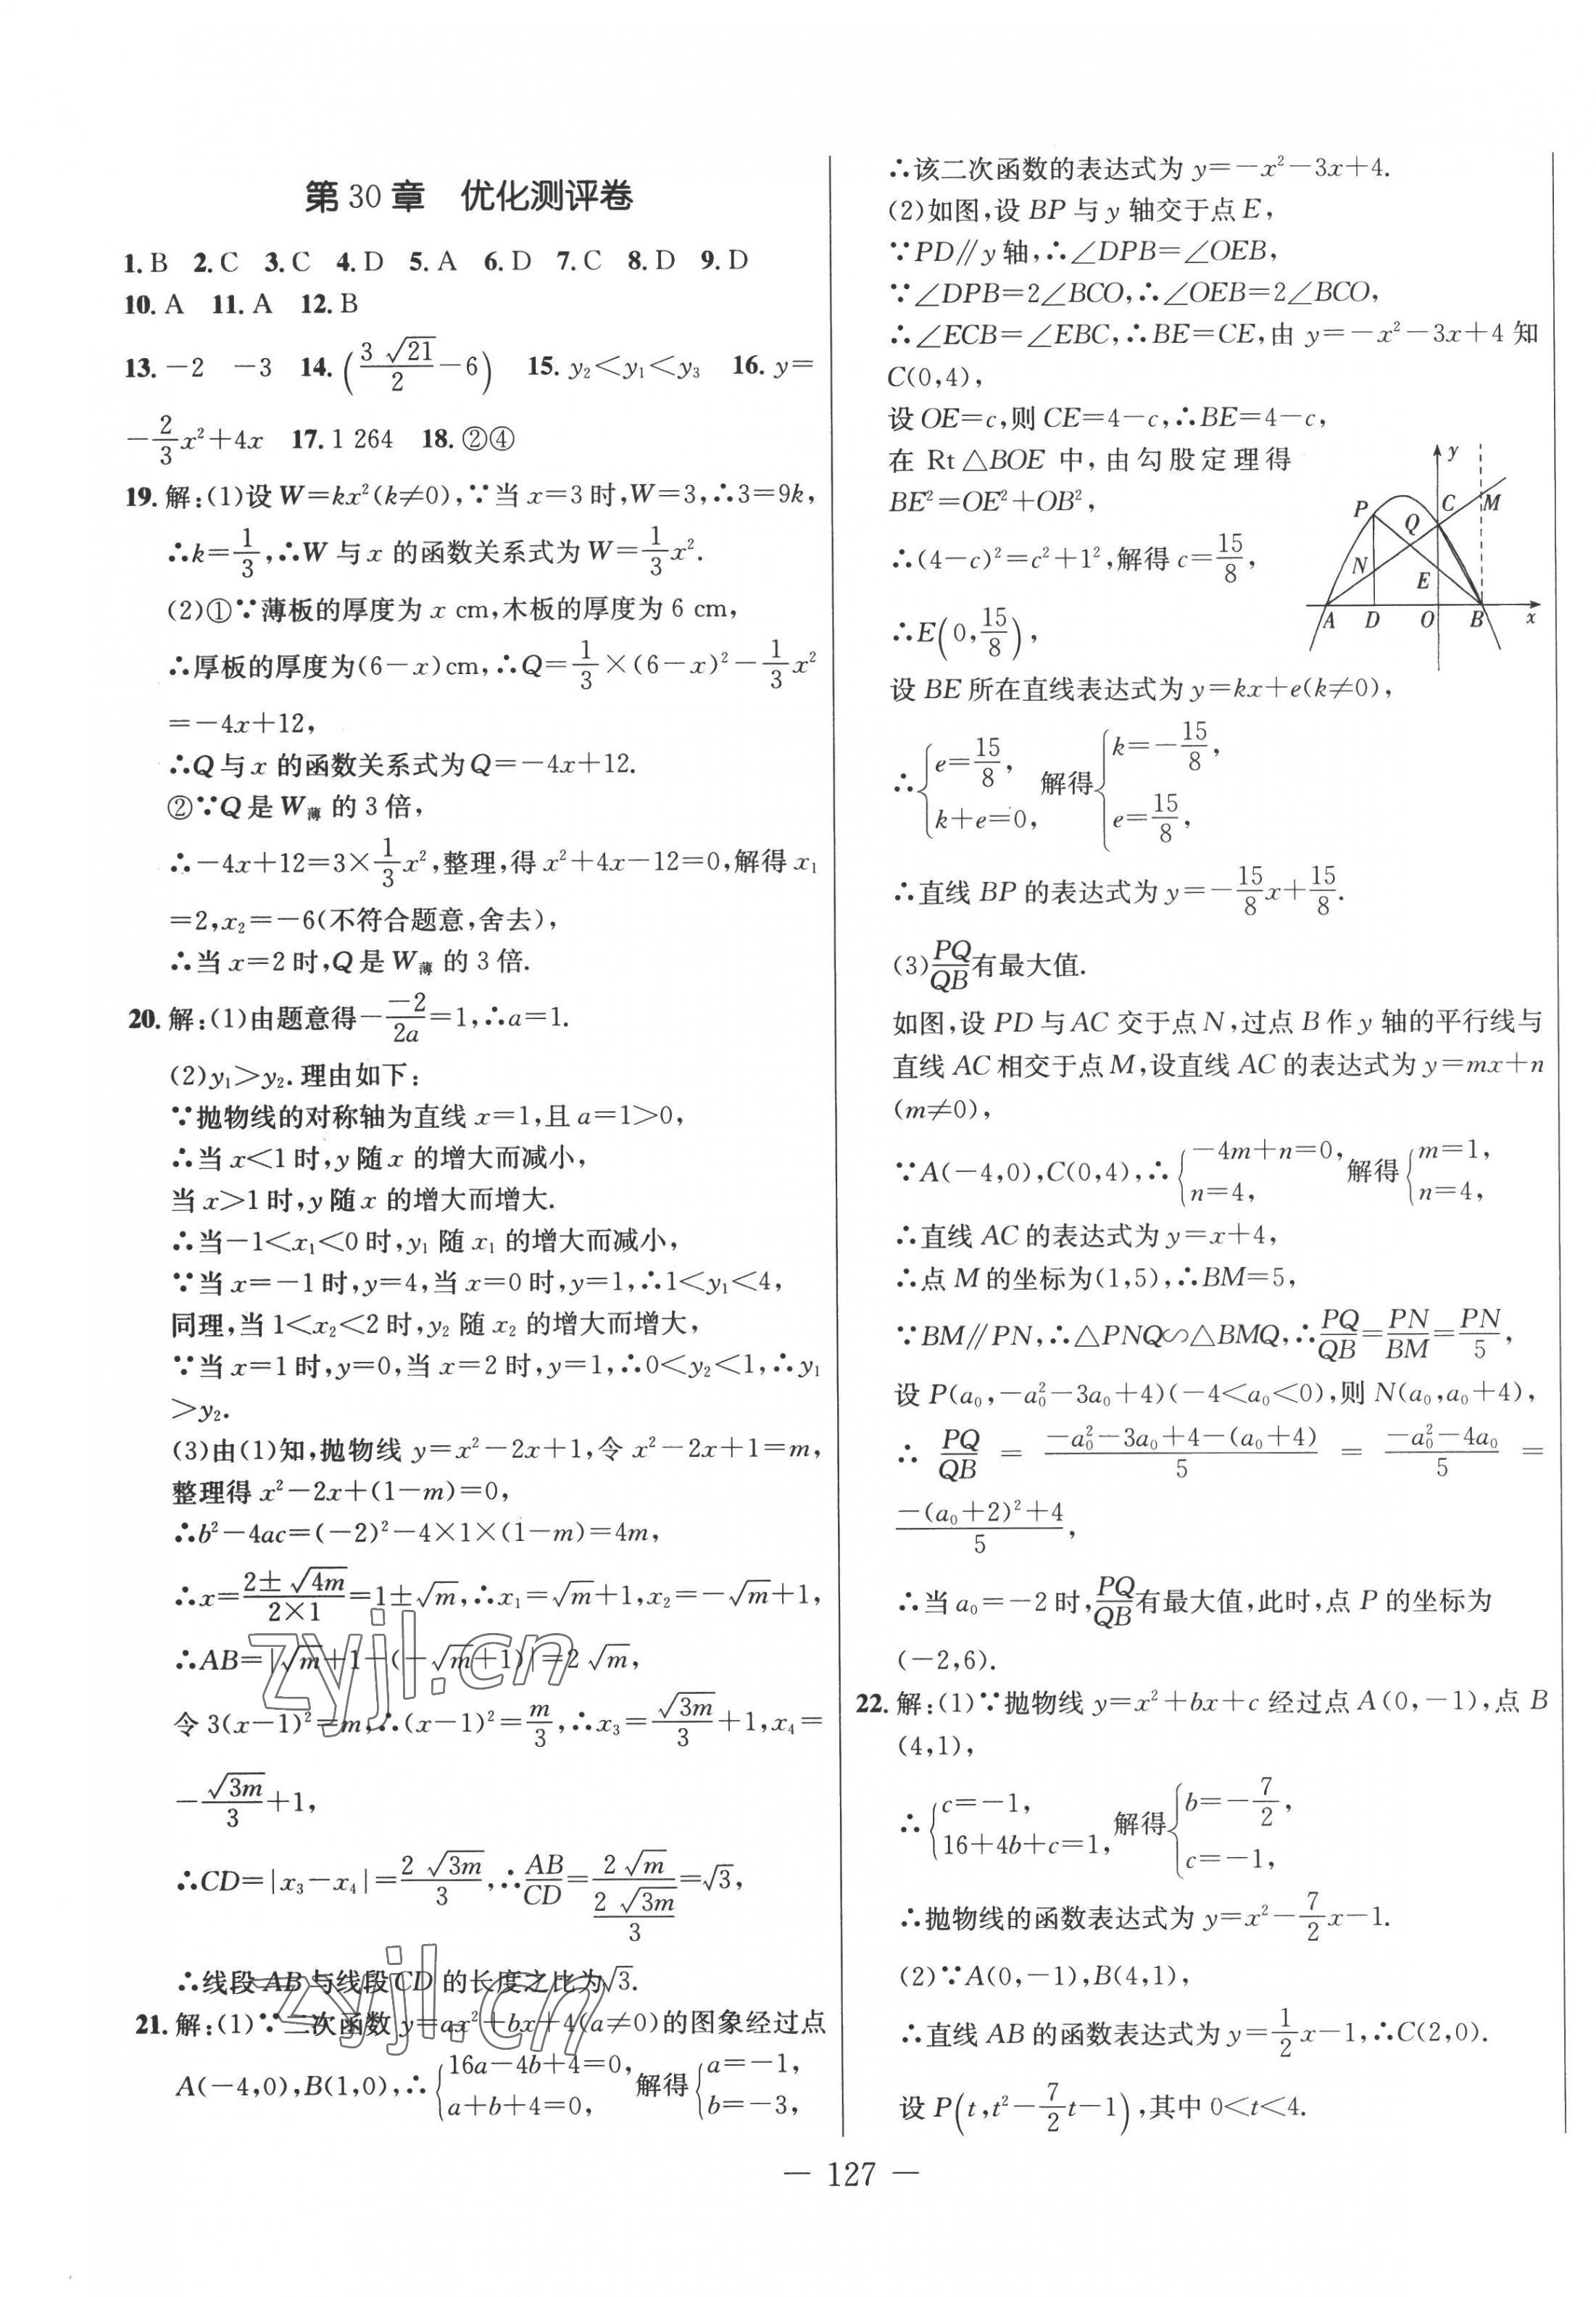 第 30 章　优化测评卷
1. B　2. C　3. C　4. D　5. A　6. D　7. C　8. D　9. D
10. A　11. A　12. B
13. －2　－3　14. (3√21/2－6)　15. y₂＜y₁＜y₃　16. y＝
－2/3x²＋4x　17. 1 264　18. ②④
19. 解:(1)设 W＝kx²(k≠0),∵当 x＝3 时,W＝3,∴3＝9k,
∴k＝1/3,∴W 与 x 的函数关系式为 W＝1/3x².
(2)①∵薄板的厚度为 x cm,木板的厚度为 6 cm,
∴厚板的厚度为(6－x)cm,∴Q＝1/3×(6－x)²－1/3x²
＝－4x＋12,
∴Q 与 x 的函数关系式为 Q＝－4x＋12.
②∵Q 是 W薄 的 3 倍,
∴－4x＋12＝3×1/3x²,整理,得 x²＋4x－12＝0,解得 x₁
＝2,x₂＝－6(不符合题意,舍去),
∴当 x＝2 时,Q 是 W薄 的 3 倍.
20. 解:(1)由题意得－(－2)/2a＝1,∴a＝1.
(2)y₁＞y₂.理由如下:
∵抛物线的对称轴为直线 x＝1,且 a＝1＞0,
∴当 x＜1 时,y 随 x 的增大而减小,
当 x＞1 时,y 随 x 的增大而增大.
∴当－1＜x₁＜0 时,y₁ 随 x₁ 的增大而减小,
∵当 x＝－1 时,y＝4,当 x＝0 时,y＝1,∴1＜y₁＜4,
同理,当 1＜x₂＜2 时,y₂ 随 x₂ 的增大而增大,
∵当 x＝1 时,y＝0,当 x＝2 时,y＝1,∴0＜y₂＜1,∴y₁
＞y₂.
(3)由(1)知,抛物线 y＝x²－2x＋1,令 x²－2x＋1＝m,
整理得 x²－2x＋(1－m)＝0,
∴b²－4ac＝(－2)²－4×1×(1－m)＝4m,
∴x＝(2±√4m)/(2×1)＝1±√m,∴x₁＝√m＋1,x₂＝－√m＋1,
∴AB＝|√m＋1－(－√m＋1)|＝2√m,
令 3(x－1)²＝m,∴(x－1)²＝m/3,∴x₃＝√3m/3＋1,x₄＝
－√3m/3＋1,
∴CD＝|x₃－x₄|＝2√3m/3,∴AB/CD＝2√m/(2√3m/3)＝√3,
∴线段 AB 与线段 CD 的长度之比为√3.
21. 解:(1)∵二次函数 y＝ax²＋bx＋4(a≠0)的图象经过点
A(－4,0),B(1,0),∴{16a－4b＋4＝0, a＋b＋4＝0, 解得{a＝－1, b＝－3,
∴该二次函数的表达式为 y＝－x²－3x＋4.
(2)如图,设 BP 与 y 轴交于点 E,
∵PD∥y 轴,∴∠DPB＝∠OEB,
∵∠DPB＝2∠BCO,∴∠OEB＝2∠BCO,
∴∠ECB＝∠EBC,∴BE＝CE,由 y＝－x²－3x＋4 知
C(0,4),
设 OE＝c,则 CE＝4－c,∴BE＝4－c,
在 Rt△BOE 中,由勾股定理得
BE²＝OE²＋OB²,
∴(4－c)²＝c²＋1²,解得 c＝15/8,
∴E(0,15/8),
y
P Q C M
N E
A D O B x
设 BE 所在直线表达式为 y＝kx＋e(k≠0),
∴{e＝15/8, k＋e＝0, 解得{k＝－15/8, e＝15/8,
∴直线 BP 的表达式为 y＝－15/8x＋15/8.
(3)PQ/QB有最大值.
如图,设 PD 与 AC 交于点 N,过点 B 作 y 轴的平行线与
直线 AC 相交于点 M,设直线 AC 的表达式为 y＝mx＋n
(m≠0),
∵A(－4,0),C(0,4),∴{－4m＋n＝0, n＝4, 解得{m＝1, n＝4,
∴直线 AC 的表达式为 y＝x＋4,
∴点 M 的坐标为(1,5),∴BM＝5,
∵BM∥PN,∴△PNQ∽△BMQ,∴PQ/QB＝PN/BM＝PN/5,
设 P(a₀,－a₀²－3a₀＋4)(－4＜a₀＜0),则 N(a₀,a₀＋4),
∴ PQ/QB ＝ (－a₀²－3a₀＋4－(a₀＋4))/5 ＝ (－a₀²－4a₀)/5 ＝
(－(a₀＋2)²＋4)/5,
∴当 a₀＝－2 时,PQ/QB有最大值,此时,点 P 的坐标为
(－2,6).
22. 解:(1)∵抛物线 y＝x²＋bx＋c 经过点 A(0,－1),点 B
(4,1),
∴{c＝－1, 16＋4b＋c＝1, 解得{b＝－7/2, c＝－1,
∴抛物线的函数表达式为 y＝x²－7/2x－1.
(2)∵A(0,－1),B(4,1),
∴直线 AB 的函数表达式为 y＝1/2x－1,∴C(2,0).
设 P(t,t²－7/2t－1),其中 0＜t＜4.
— 127 —
zyjl.cn
zyjl.cn